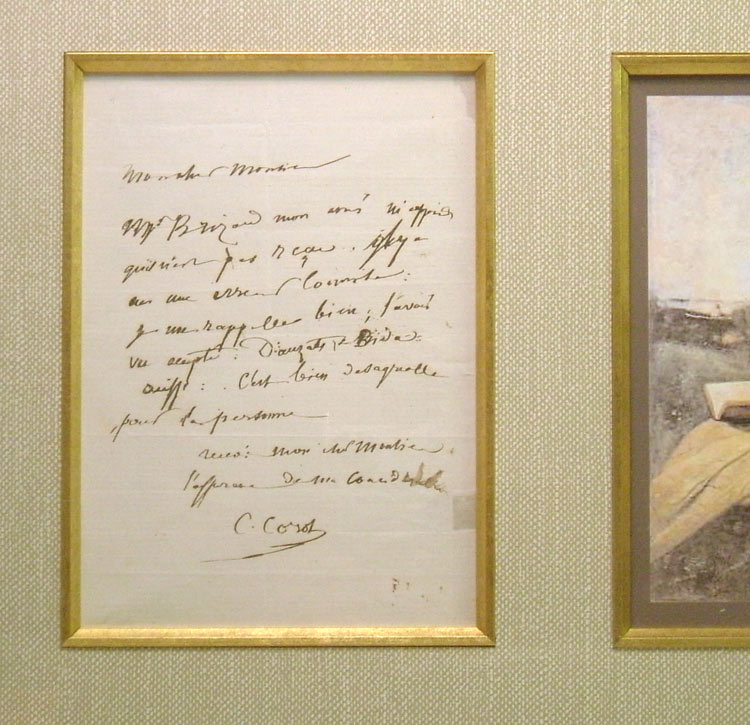 Mon cher Monsieur
Mr Brizard mon ami m'apprend
qu'il n'est pas reçu. il y a
eu une erreur
je me rappelle bien, l'avoir
vu accepté: Dauzats, & Bida
aussi: C'est bien désagréable
pour la personne
recev: mon cher Monsieur
l'assurance de ma
C. Corot